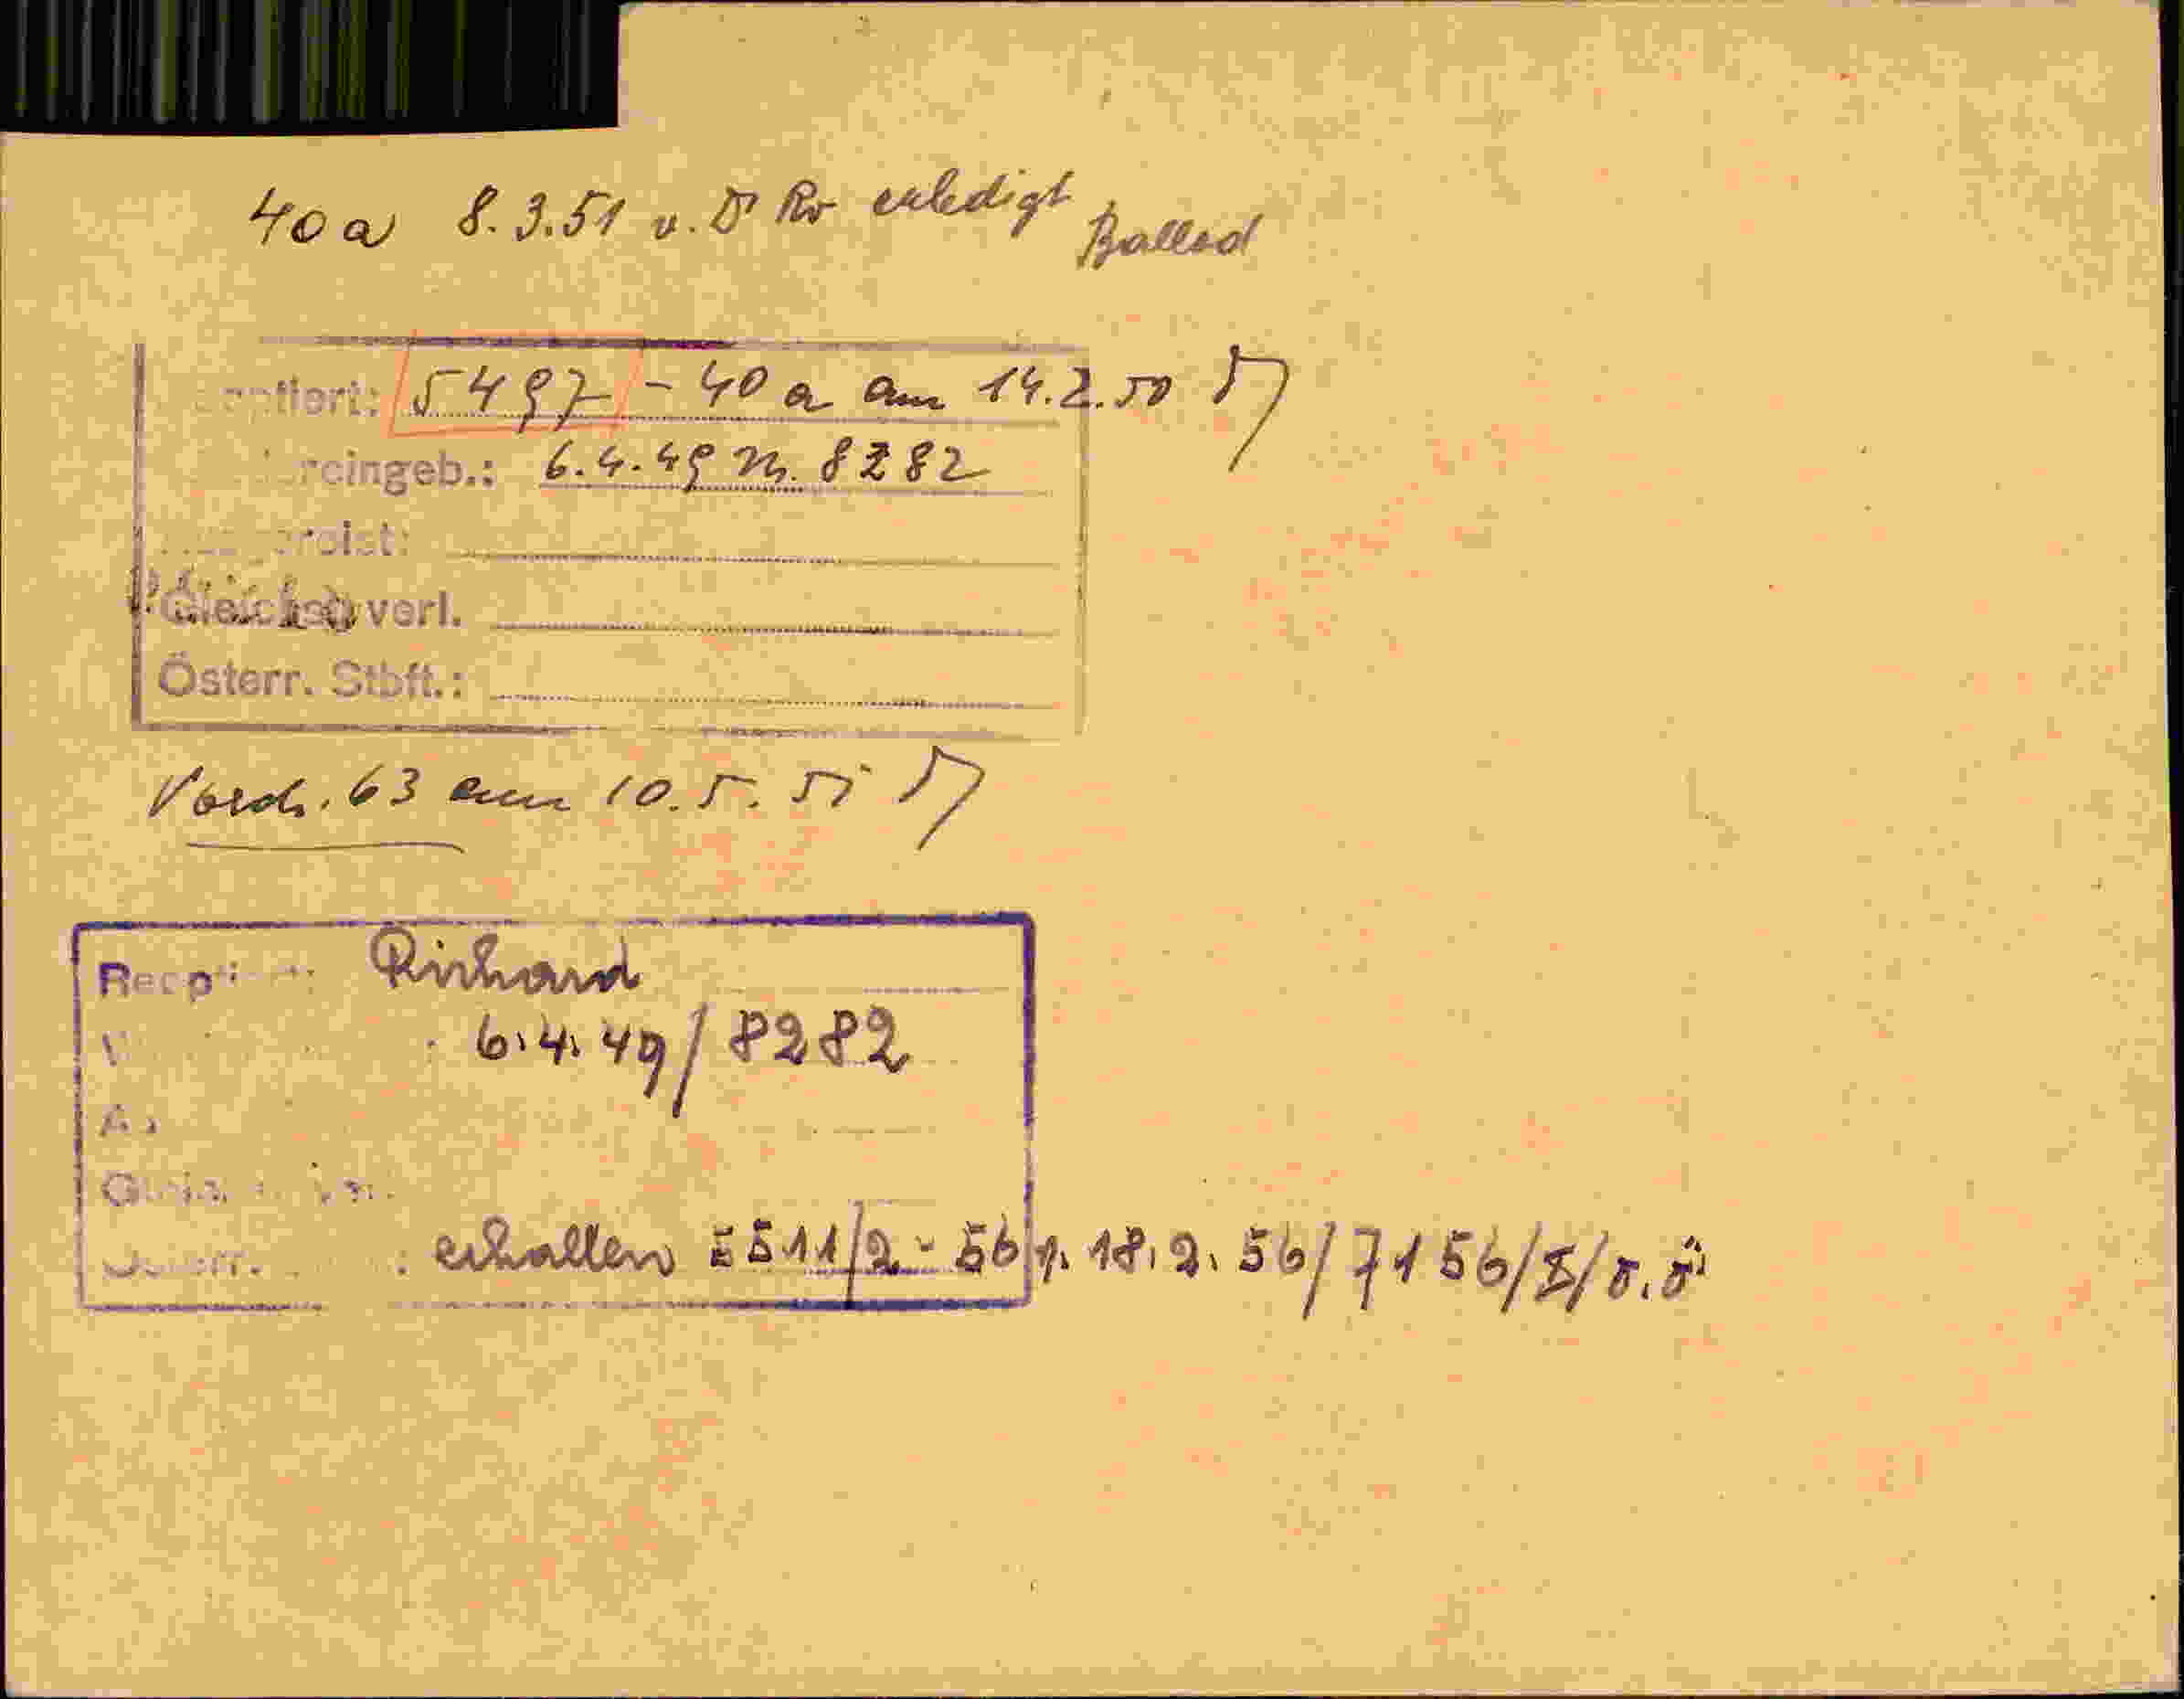 40 a 8.3.51 v. Dr Rv erledigt Ballod
5497 - 40 a am 14.2.50
reingeb.: 6.4.49 Nr. 8282
Gleichsch verl.
Österr. Stbft.:
Vordr. 63 am 10.5.51
Richard
6.4.49/8282
erhalten 5511/2-56 v. 18.2.56/7156/I/Ö.Ö.